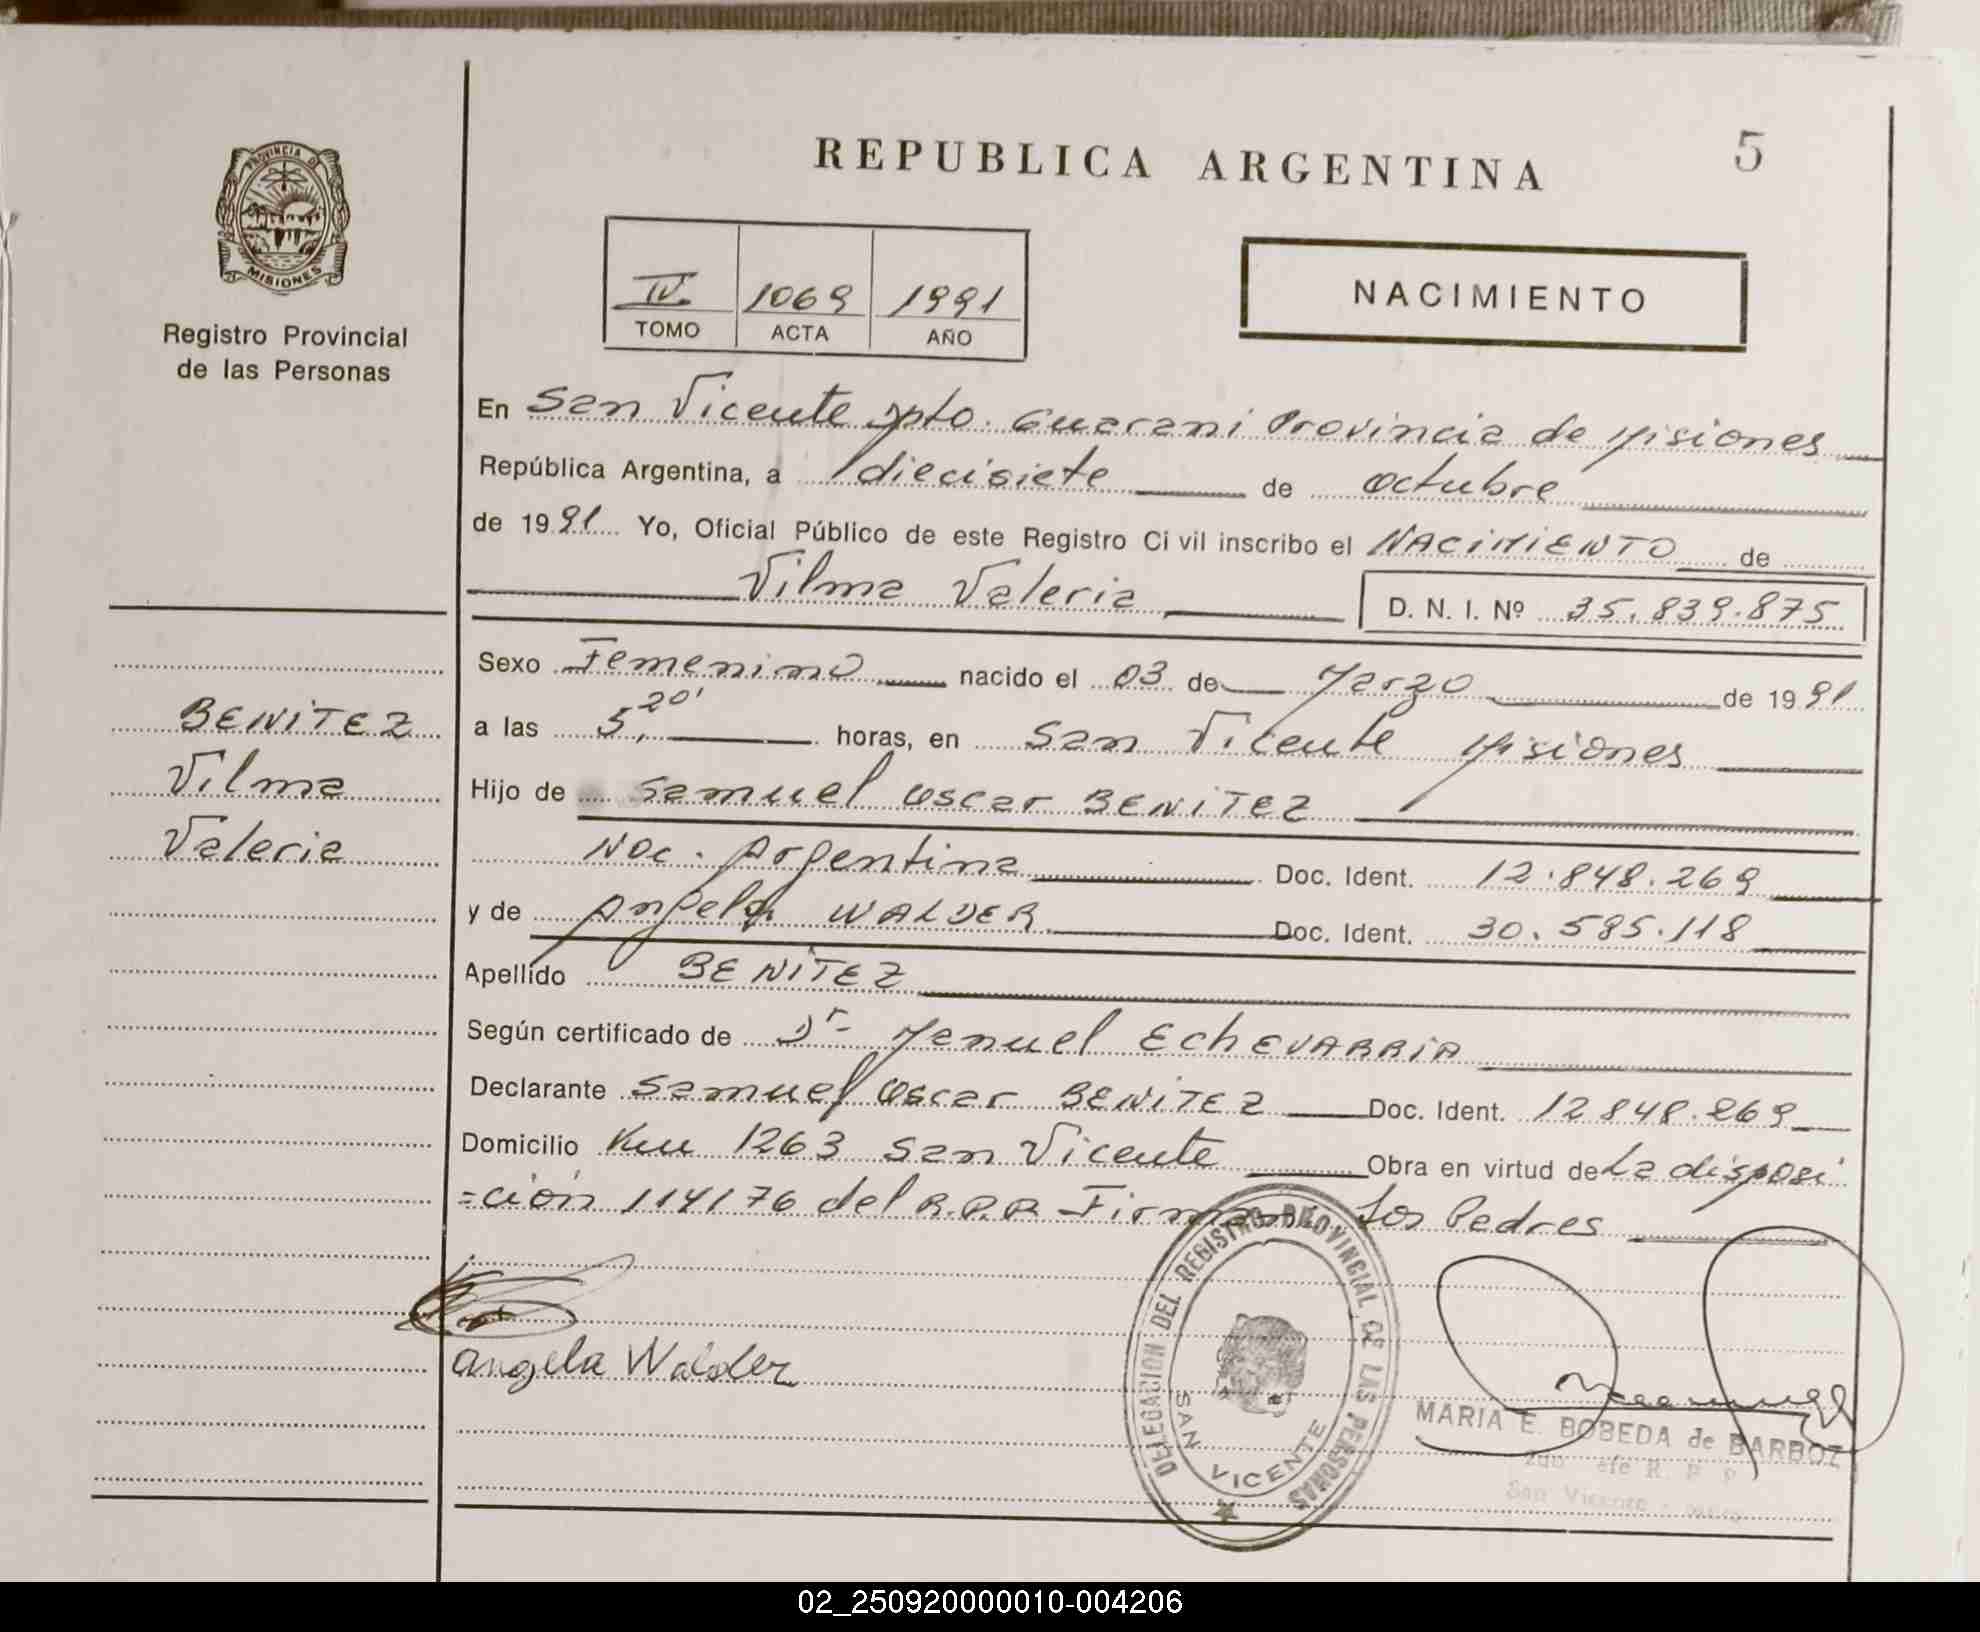 REPUBLICA ARGENTINA
5
PROVINCIA DE
MISIONES
Registro Provincial
de las Personas
IV. 1069 1991
TOMO ACTA AÑO
NACIMIENTO
En San Vicente Dpto. Guarani Provincia de Misiones
República Argentina, a diecisiete de octubre
de 1991 Yo, Oficial Público de este Registro Civil inscribo el NACIMIENTO de
Vilma Valeria D. N. I. Nº 35.839.875
Sexo Femenino nacido el 03 de Marzo de 1991
a las 5,20' horas, en San Vicente Misiones
Hijo de Samuel Oscar BENITEZ
Nac. Argentina Doc. Ident. 12.848.269
y de Angela WALDER Doc. Ident. 30.585.118
Apellido BENITEZ
Según certificado de Dr- Manuel EChEVARRIA
Declarante Samuel Oscar BENITEZ Doc. Ident. 12848.269
Domicilio Km 1263 San Vicente Obra en virtud de La disposi
=ción 114/76 del R.P.P. Firman Los Padres
BENITEZ
Vilma
Valeria
angela Walder
DELEGACION DEL REGISTRO PROVINCIAL DE LAS PERSONAS
SAN VICENTE
MARIA E. BOBEDA de BARBOZ
2do. efe R. P. P.
San Vicente
02_250920000010-004206